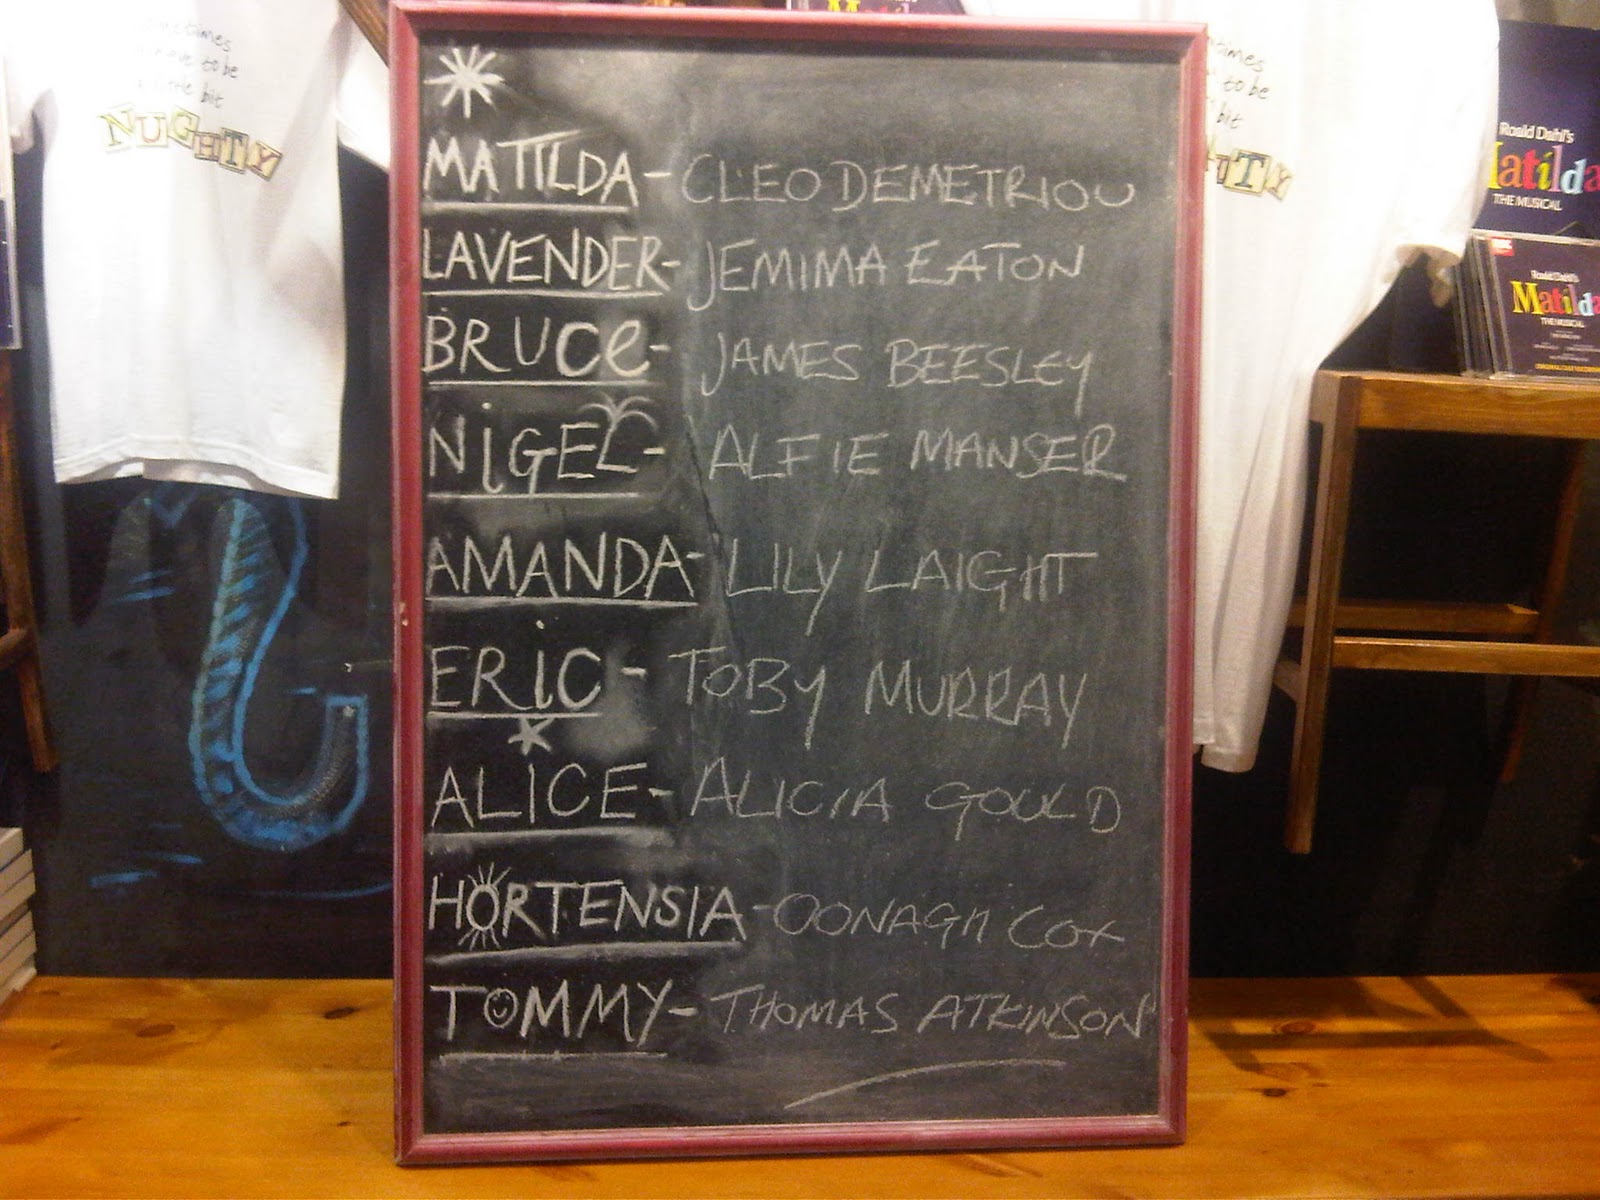 sometimes
to be
bit
NUGHTY
MATILDA - CLEO DEMETRIOU
LAVENDER - JEMIMA EATON
BRUCE - JAMES BEESLEY
NIGEL - ALFIE MANSER
AMANDA - LILY LAIGHT
ERIC - TOBY MURRAY
ALICE - ALICIA GOULD
HORTENSIA - OONAGH COX
TOMMY - THOMAS ATKINSON
to be
bit
Roald Dahl's
Matilda
THE MUSICAL
Roald Dahl's
Matilda
THE MUSICAL